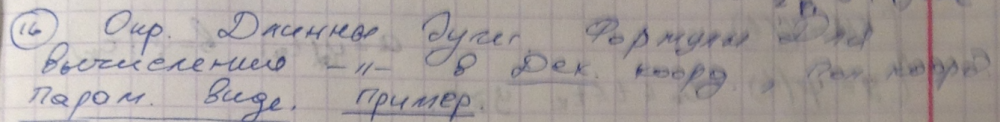 16 Опр. Длинны дуги. Формулы Для
вычисления -"- в Дек. коорд., пол. коорд.
парам. виде. пример.